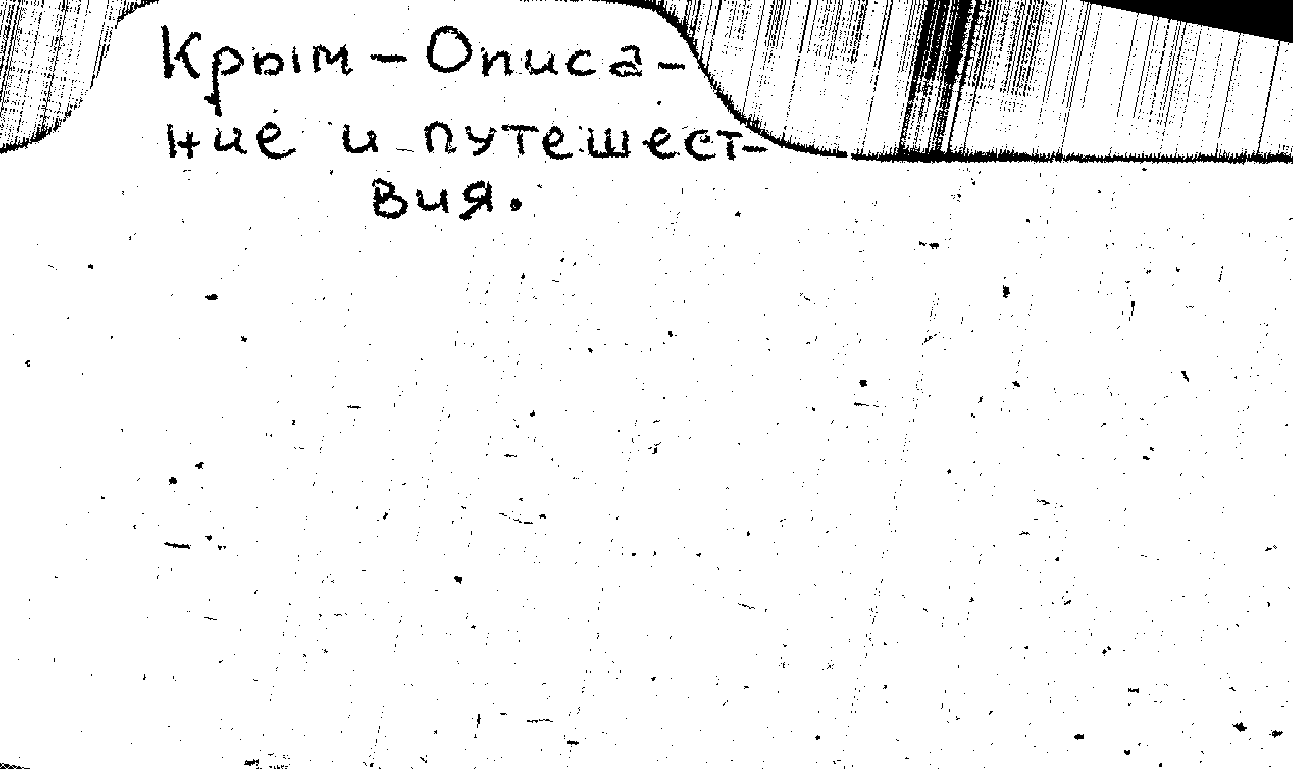 Крым – Описа-
ние и путешест-
вия.